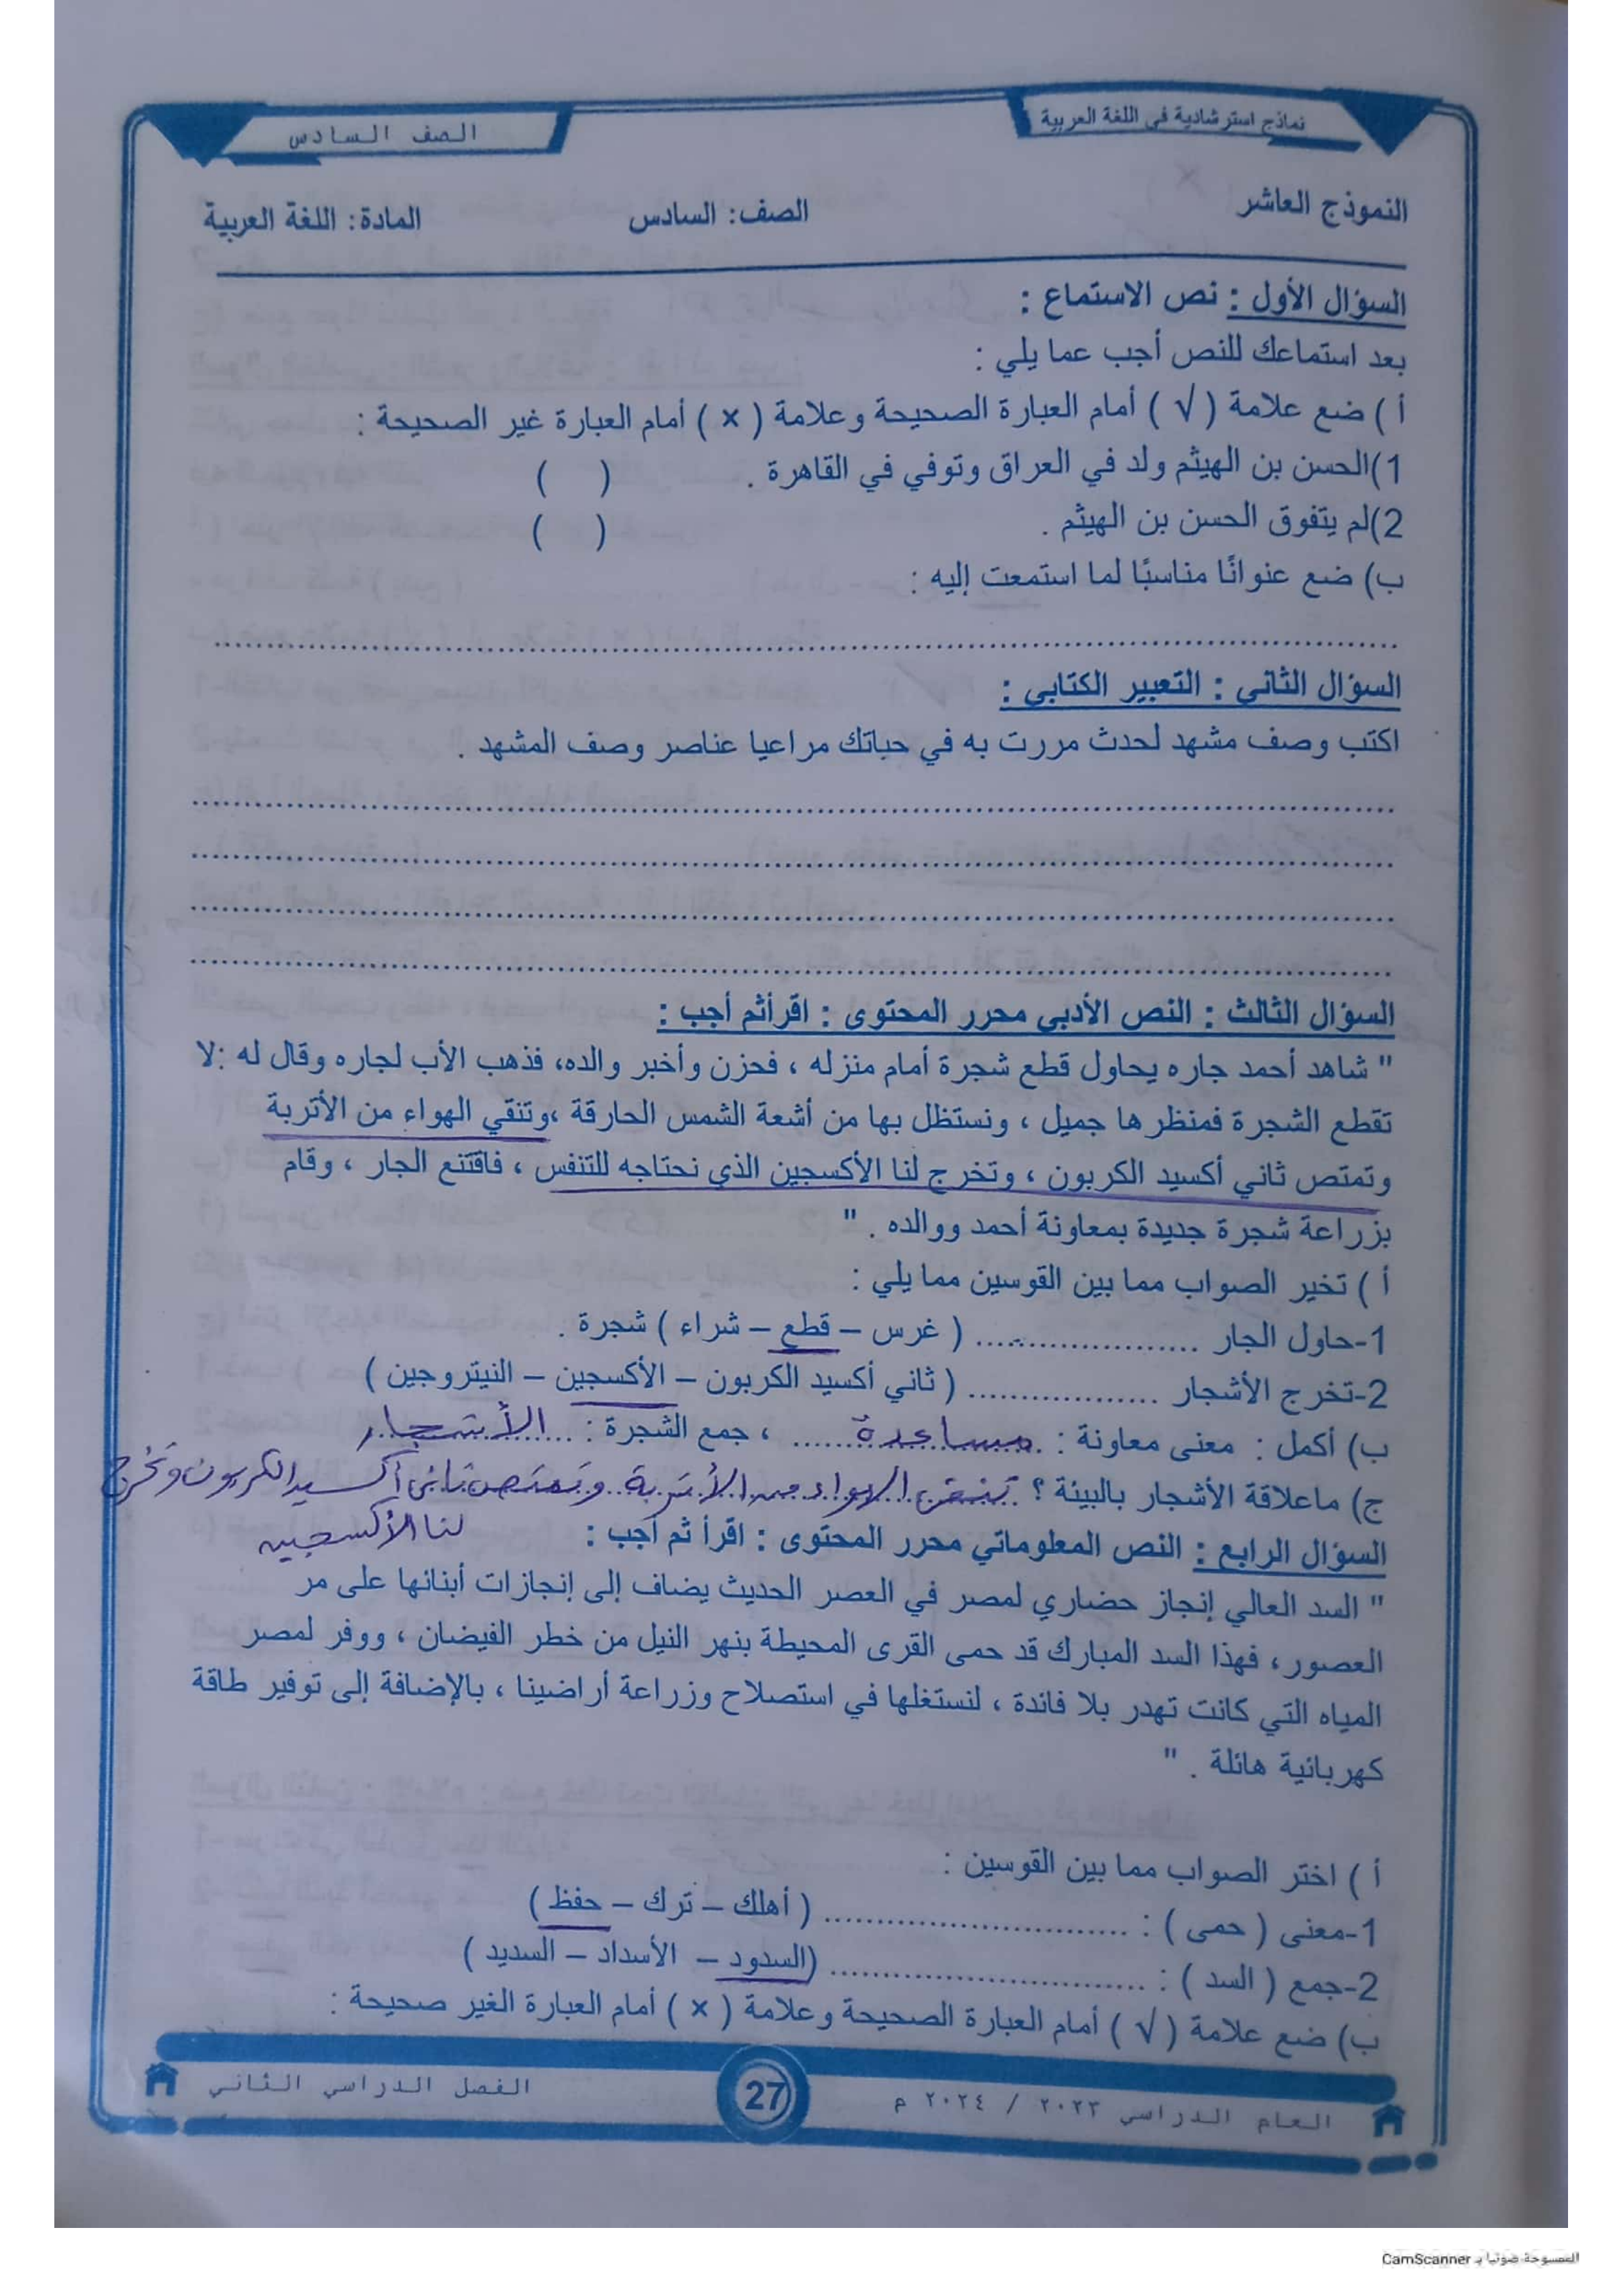 نماذج استرشادية في اللغة العربية
الصف السادس
النموذج العاشر الصف: السادس المادة: اللغة العربية
السؤال الأول : نص الاستماع :
بعد استماعك للنص أجب عما يلي :
أ ) ضع علامة ( √ ) أمام العبارة الصحيحة وعلامة ( × ) أمام العبارة غير الصحيحة :
1)الحسن بن الهيثم ولد في العراق وتوفي في القاهرة . ( )
2)لم يتفوق الحسن بن الهيثم . ( )
ب) ضع عنوانًا مناسبًا لما استمعت إليه :
السؤال الثاني : التعبير الكتابي :
اكتب وصف مشهد لحدث مررت به في حياتك مراعيا عناصر وصف المشهد .
السؤال الثالث : النص الأدبي محرر المحتوى : اقرأثم أجب :
" شاهد أحمد جاره يحاول قطع شجرة أمام منزله ، فحزن وأخبر والده، فذهب الأب لجاره وقال له :لا
تقطع الشجرة فمنظرها جميل ، ونستظل بها من أشعة الشمس الحارقة ،وتنقي الهواء من الأتربة
وتمتص ثاني أكسيد الكربون ، وتخرج لنا الأكسجين الذي نحتاجه للتنفس ، فاقتنع الجار ، وقام
بزراعة شجرة جديدة بمعاونة أحمد ووالده . "
أ ) تخير الصواب مما بين القوسين مما يلي :
1-حاول الجار .................... ( غرس – قطع – شراء ) شجرة .
2-تخرج الأشجار .................. ( ثاني أكسيد الكربون – الأكسجين – النيتروجين )
ب) أكمل : معنى معاونة : مساعدة ، جمع الشجرة : الأشجار
ج) ماعلاقة الأشجار بالبيئة ؟ تنقي الهواء من الأتربة وتمتص ثاني أكسيد الكربون وتخرج
لنا الأكسجين
السؤال الرابع : النص المعلوماتي محرر المحتوى : اقرأ ثم أجب :
" السد العالي إنجاز حضاري لمصر في العصر الحديث يضاف إلى إنجازات أبنائها على مر
العصور، فهذا السد المبارك قد حمى القرى المحيطة بنهر النيل من خطر الفيضان ، ووفر لمصر
المياه التي كانت تهدر بلا فائدة ، لنستغلها في استصلاح وزراعة أراضينا ، بالإضافة إلى توفير طاقة
كهربائية هائلة . "
أ ) اختر الصواب مما بين القوسين :
1-معنى ( حمى ) : .............................. ( أهلك – ترك – حفظ )
2-جمع ( السد ) : .............................. (السدود – الأسداد – السديد )
ب) ضع علامة ( √ ) أمام العبارة الصحيحة وعلامة ( × ) أمام العبارة الغير صحيحة :
العام الدراسي ٢٠٢٣ / ٢٠٢٤ م
27
الفصل الدراسي الثاني
الممسوحة ضوئيا بـ CamScanner